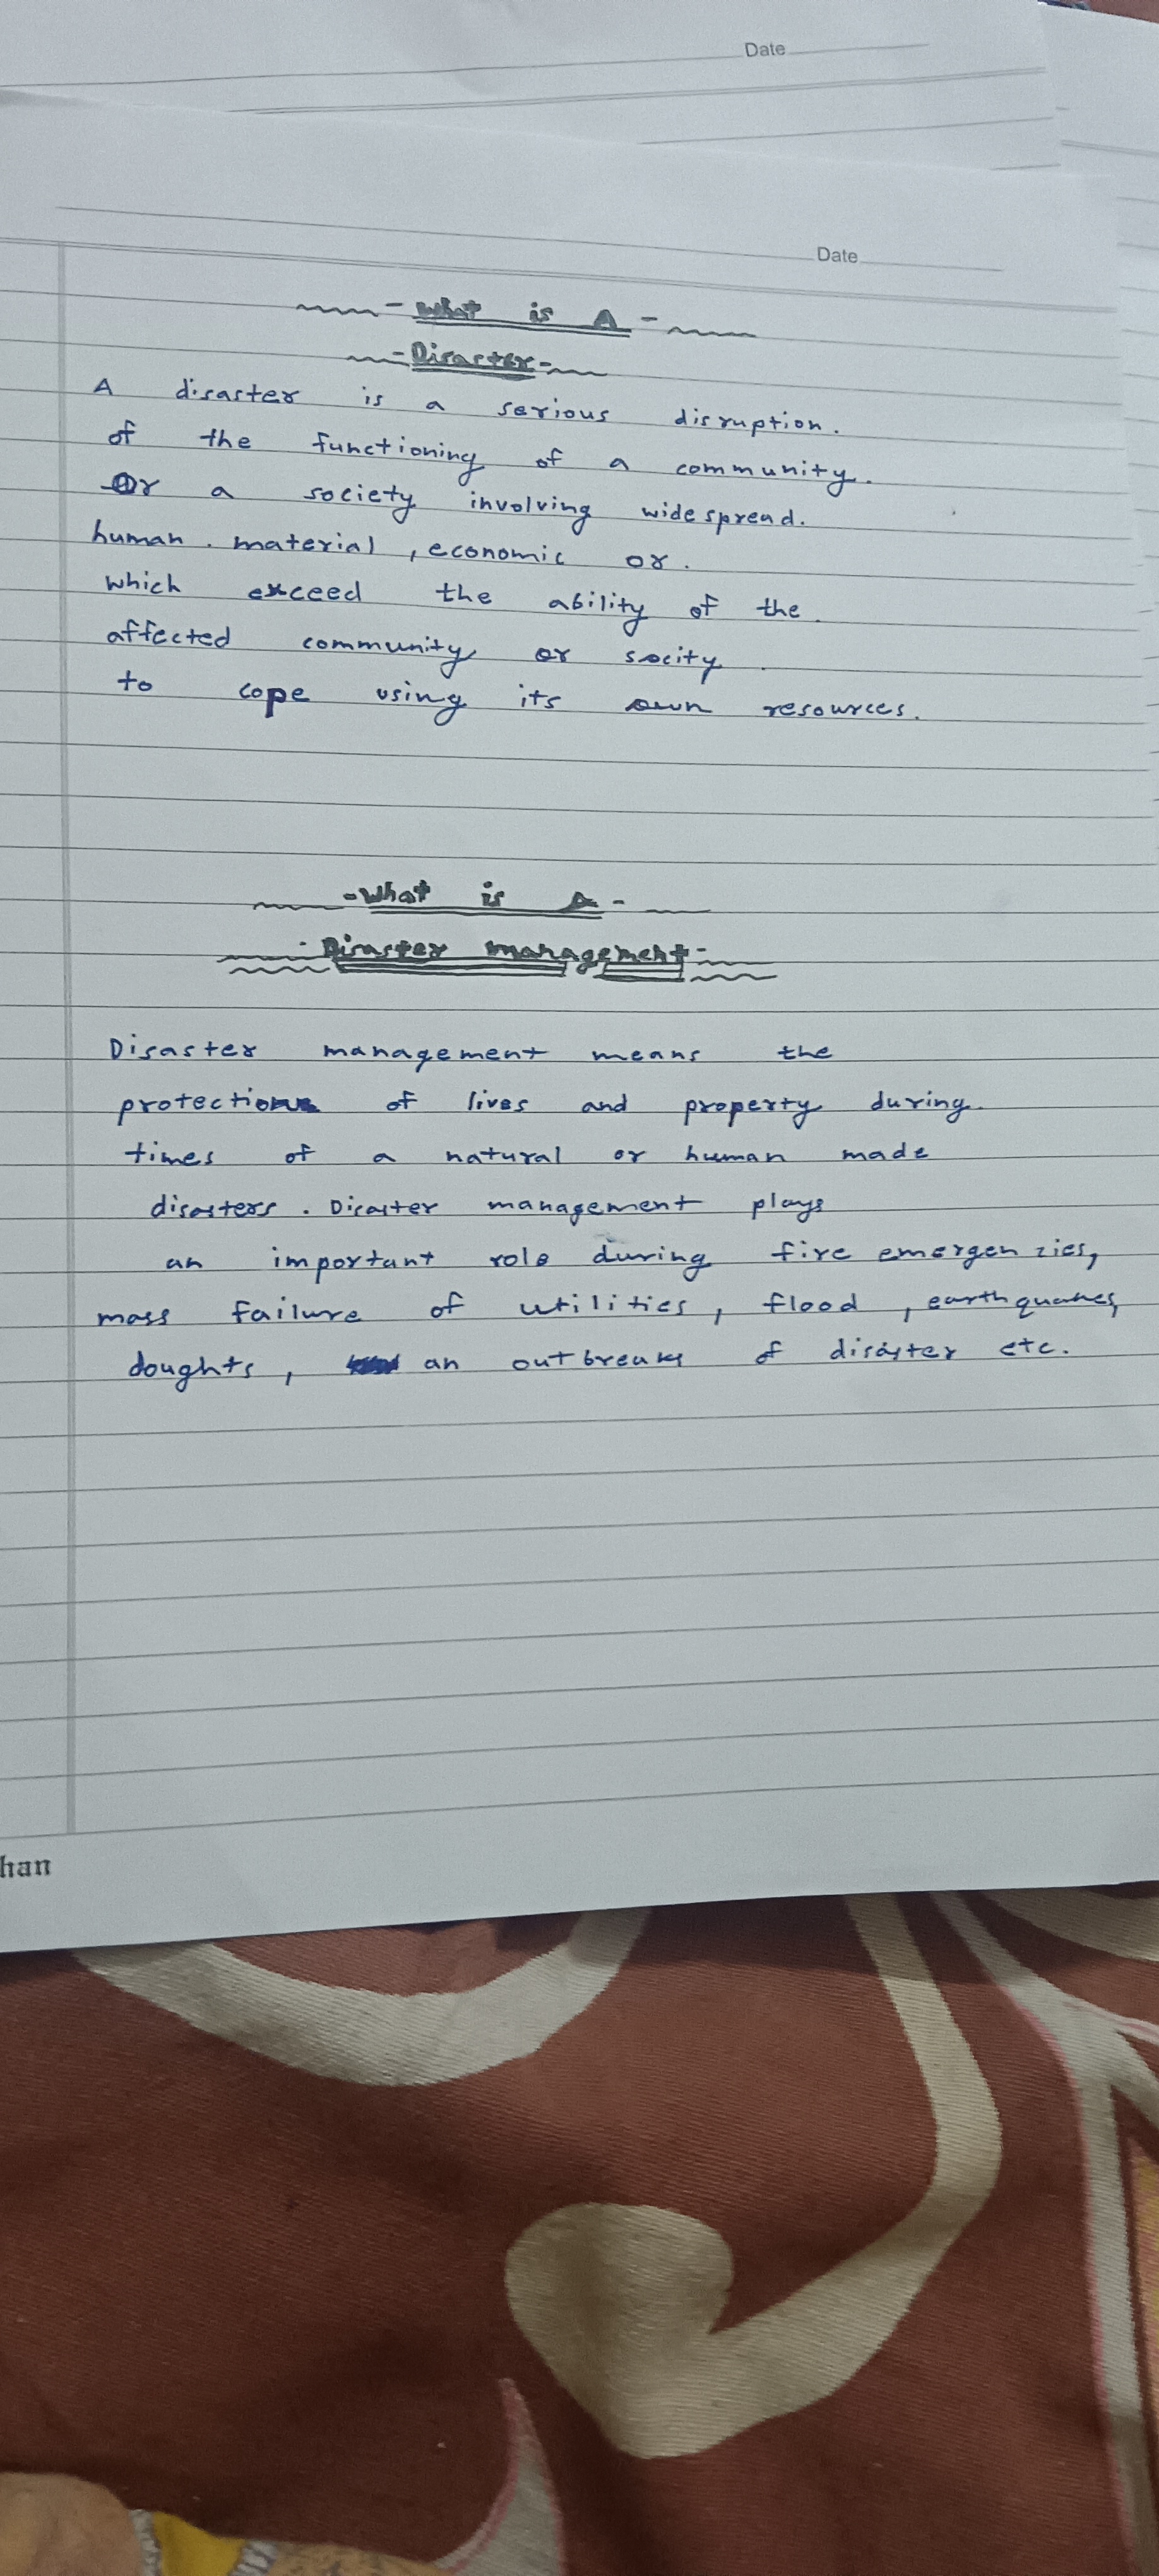 Date
Date
- What is A -
- Disaster -
A disaster is a serious disruption.
of the functioning of a community.
Or a society involving wide spread.
human . material , economic or .
which exceed the ability of the.
affected community or socity .
to cope using its own resources.
- What is A -
- Disaster management -
Disaster management means the
protection of lives and property during.
times of a natural or human made
disasters . Disaster management plays
an important role during fire emergenzies,
mass failure of utilities , flood , earthquakes,
doughts , an outbreaks of disaster etc.
han